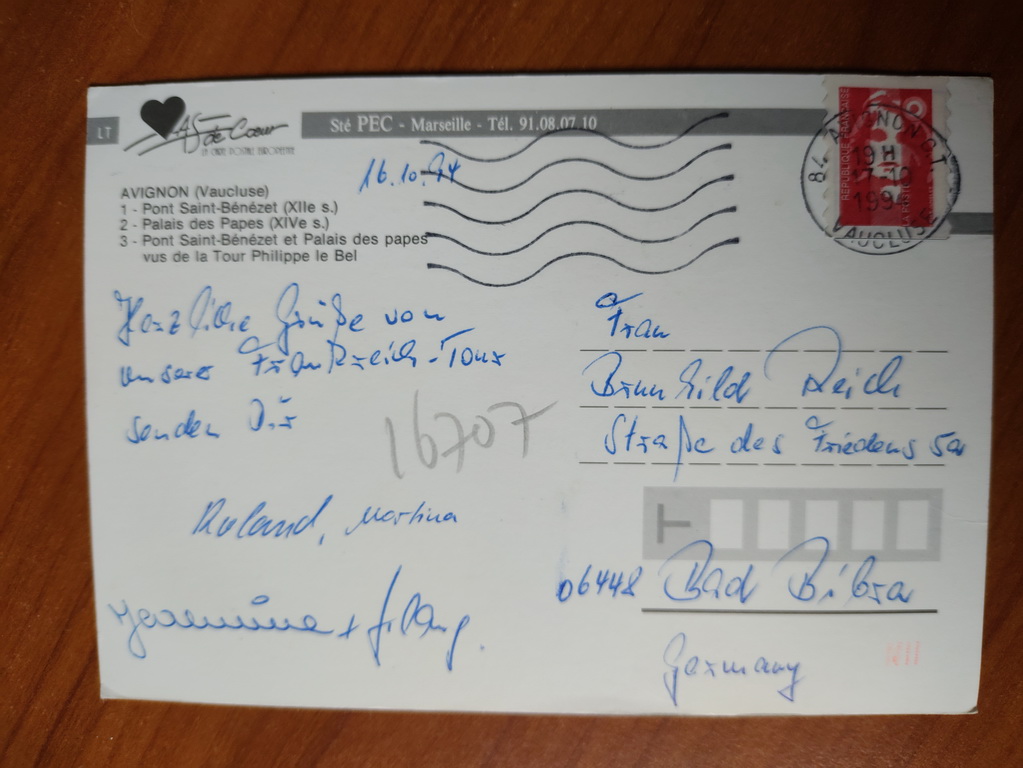 LT
AS de Cœur
LA CARTE POSTALE EUROPEENNE
Sté PEC - Marseille - Tél. 91.08.07.10
16.10.94
AVIGNON (Vaucluse)
1 - Pont Saint-Bénézet (XIIe s.)
2 - Palais des Papes (XIVe s.)
3 - Pont Saint-Bénézet et Palais des papes
vus de la Tour Philippe le Bel
REPUBLIQUE FRANÇAISE
84 AVIGNON
19 H
17-10
1994
VAUCLUSE
Herzliche Grüße von
unserer Frankreich-Tour
senden Dir
16707
Roland, Martina
Frau
Brunhild Reich
Straße des Friedens 5a
06448 Bad Bibra
Germany